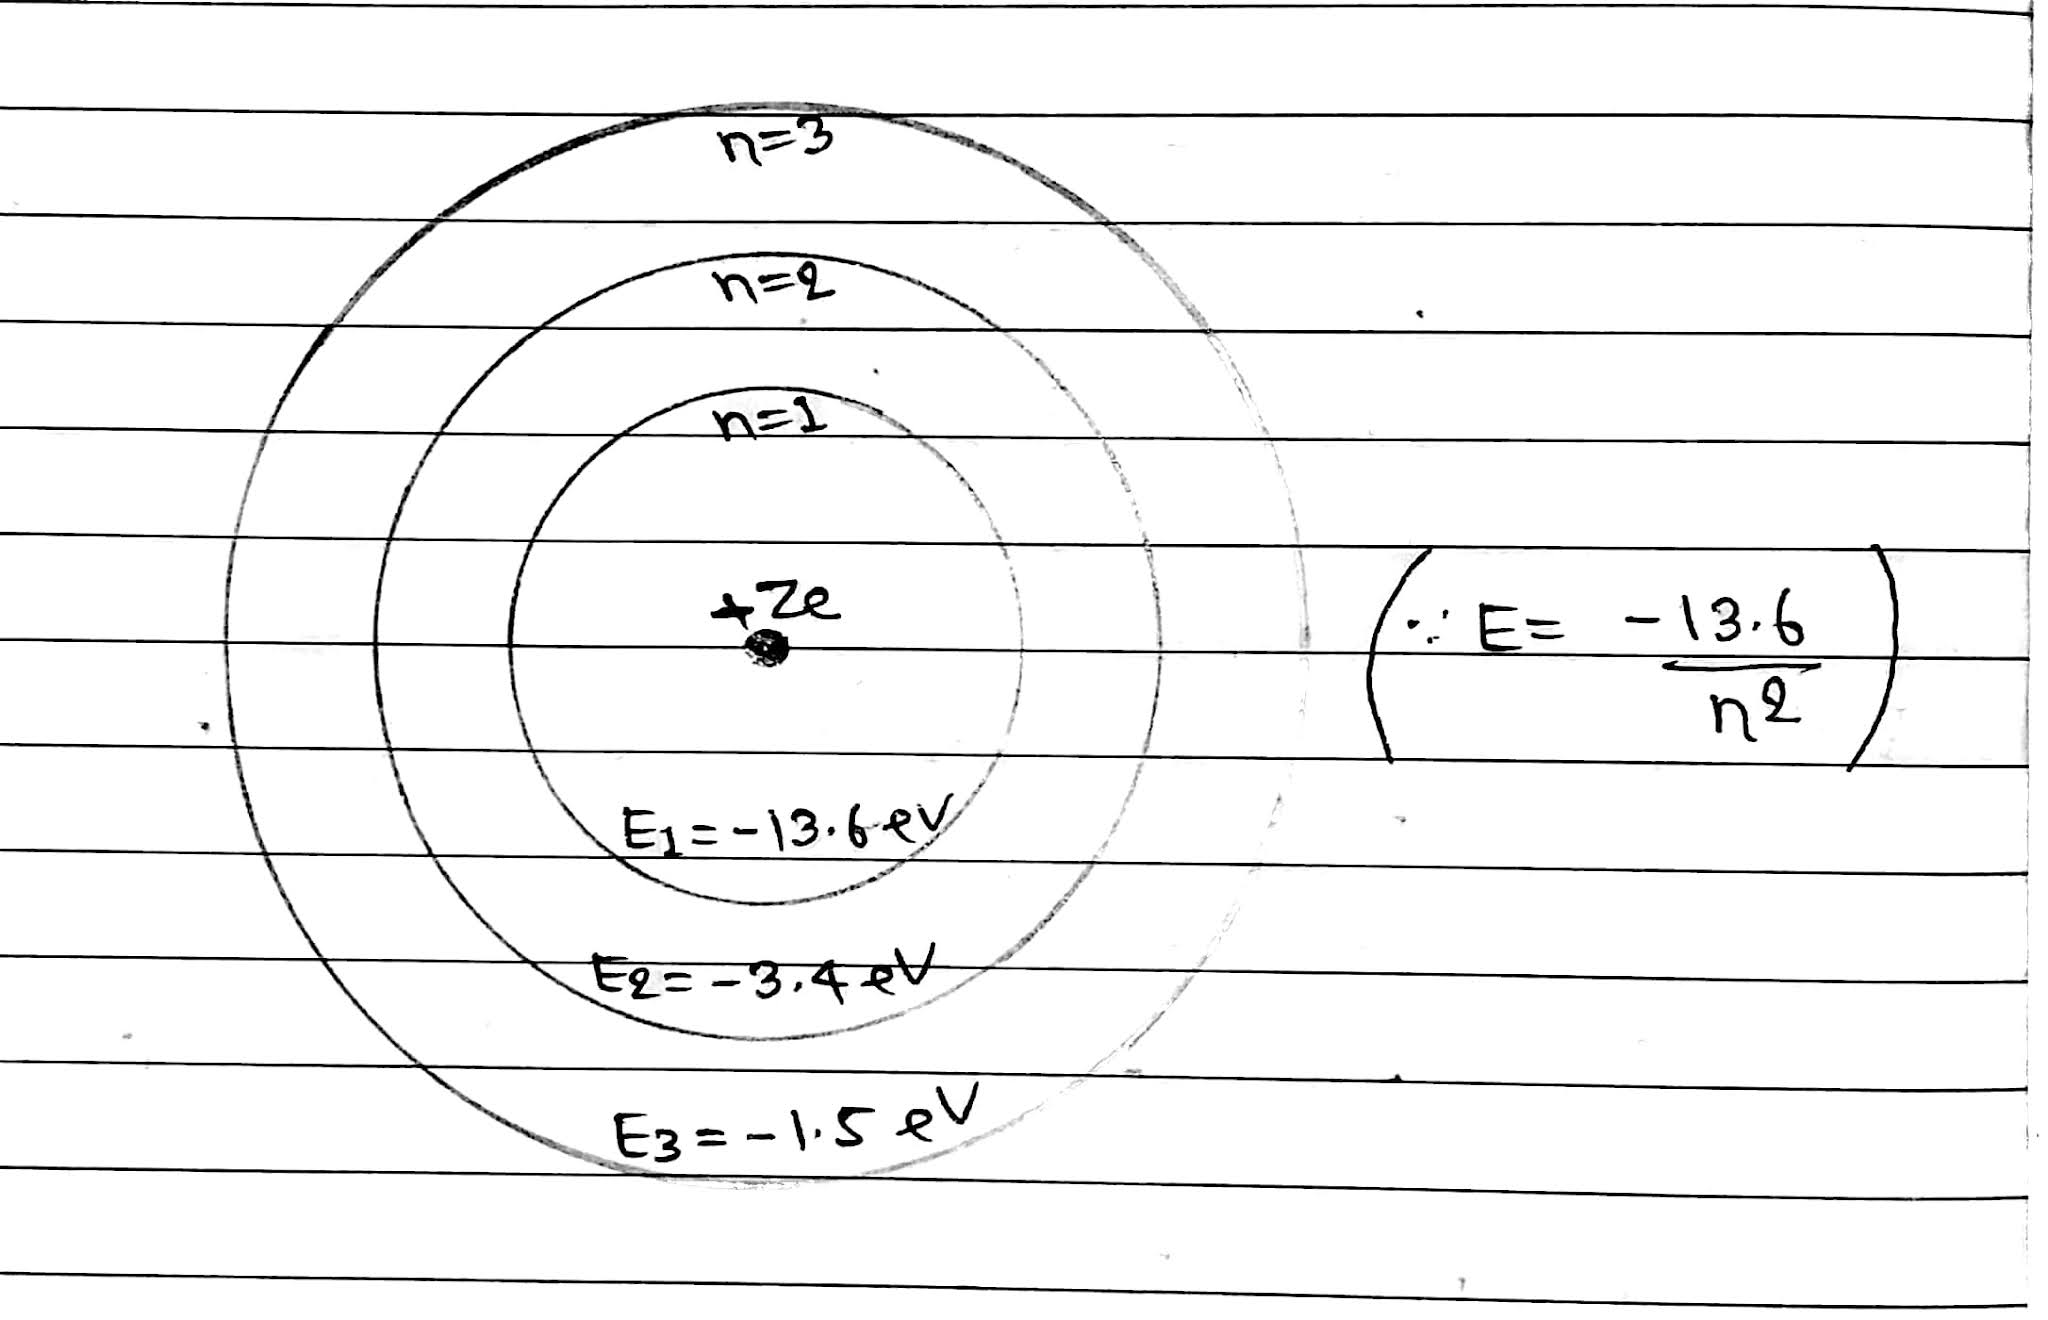 n=3
n=2
n=1
+Ze
E1=-13.6 eV
E2=-3.4 eV
E3=-1.5 eV
∵ E= -13.6
n2